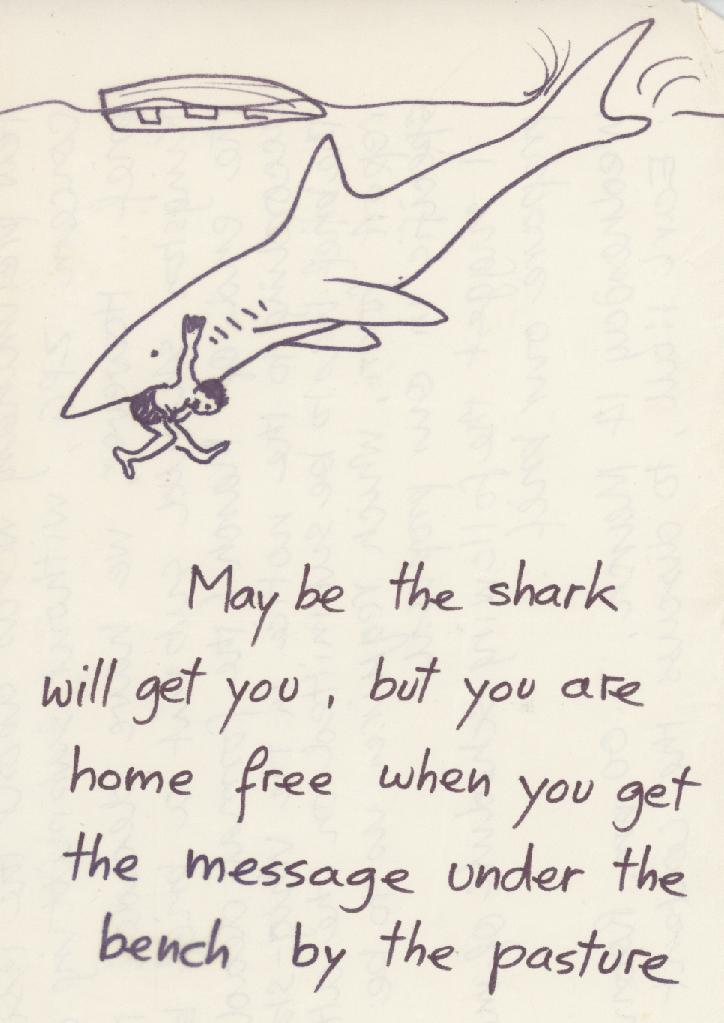 May be the shark
will get you, but you are
home free when you get
the message under the
bench by the pasture